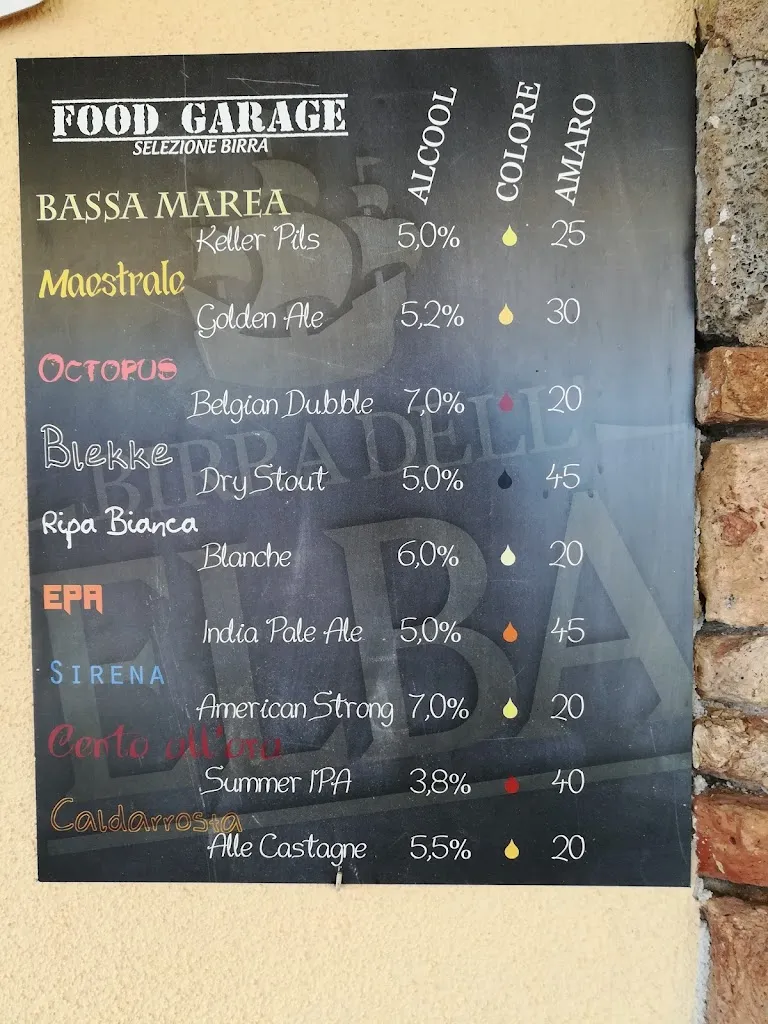 FOOD GARAGE
SELEZIONE BIRRA
ALCOOL COLORE AMARO
BASSA MAREA
Keller Pils 5,0% 25
Maestrale
Golden Ale 5,2% 30
OCTOPUS
Belgian Dubble 7,0% 20
Blekke
Dry Stout 5,0% 45
Ripa Bianca
Blanche 6,0% 20
EPA
India Pale Ale 5,0% 45
SIRENA
American Strong 7,0% 20
Cento all'ora
Summer IPA 3,8% 40
Caldarrosta
Alle Castagne 5,5% 20
BIRRA DELL'
ELBA